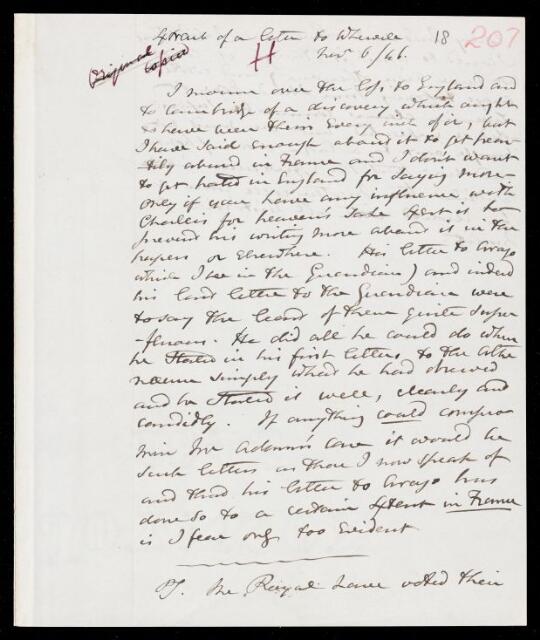 Extract of a letter to Whewell
Novr 6/46. 18 207
Original copied H
I mourn over the loss to England and
to Cambridge of a discovery which ought
to have been theirs every inch of it, but
I have said enough about it to get hear-
-tily abused in France and I don't want
to get hated in England for saying more.
Only if you have any influence with
Challis for heaven's sake exert it to
prevent his writing more about it in the
papers or elsewhere. His letter to Arago
which I see in the Guardian) and indeed
his last letter to the Guardian were
to say the least of them quite super
-fluous. He did all he could do when
he stated in his first letters to the Athe
naeum simply what he had observed
and he stated it well, clearly and
candidly. If anything could compro
mise Mr Adams's case it would be
such letters as those I now speak of
and that his letter to Arago has
done so to a certain extent in France
is I fear only too evident
PS. The Royal have voted their